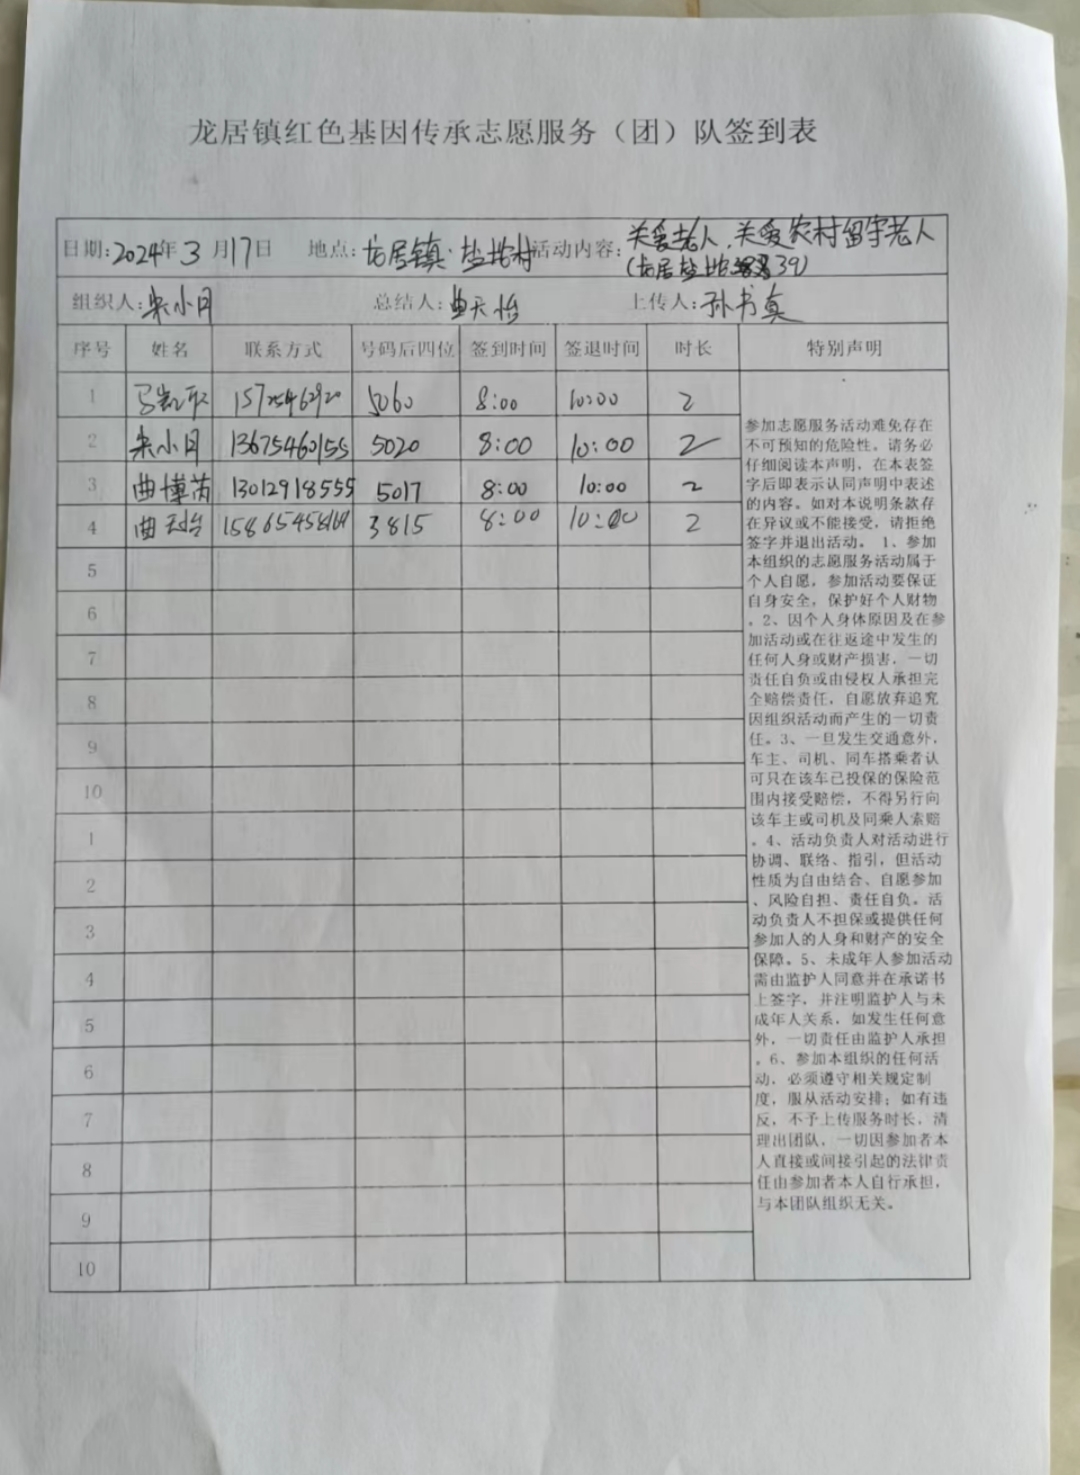 龙居镇红色基因传承志愿服务（团）队签到表
日期:2024年3月17日 地点:龙居镇·盐坨村 活动内容:关爱老人,关爱农村留守老人
(龙居盐坨 39)
组织人:宋小月 总结人:曲天怡 上传人:孙书真
序号 姓名 联系方式 号码后四位 签到时间 签退时间 时长 特别声明
1 5060 8:00 10:00 2
2 宋小月 13675460155 5020 8:00 10:00 2
3 曲博芮 13012918555 5017 8:00 10:00 2
4 3815 8:00 10:00 2
5
6
7
8
9
10
1
2
3
4
5
6
7
8
9
10
参加志愿服务活动难免存在
不可预知的危险性。请务必
仔细阅读本声明，在本表签
字后即表示认同声明中表述
的内容。如对本说明条款存
在异议或不能接受，请拒绝
签字并退出活动。1、参加
本组织的志愿服务活动属于
个人自愿，参加活动要保证
自身安全，保护好个人财物
。2、因个人身体原因及在参
加活动或在往返途中发生的
任何人身或财产损害，一切
责任自负或由侵权人承担完
全赔偿责任，自愿放弃追究
因组织活动而产生的一切责
任。3、一旦发生交通意外，
车主、司机、同车搭乘者认
可只在该车已投保的保险范
围内接受赔偿，不得另行向
该车主或司机及同乘人索赔
。4、活动负责人对活动进行
协调、联络、指引，但活动
性质为自由结合、自愿参加
、风险自担、责任自负。活
动负责人不担保或提供任何
参加人的人身和财产的安全
保障。5、未成年人参加活动
需由监护人同意并在承诺书
上签字，并注明监护人与未
成年人关系，如发生任何意
外，一切责任由监护人承担
。6、参加本组织的任何活
动，必须遵守相关规定制
度，服从活动安排；如有违
反，不予上传服务时长，清
理出团队，一切因参加者本
人直接或间接引起的法律责
任由参加者本人自行承担，
与本团队组织无关。